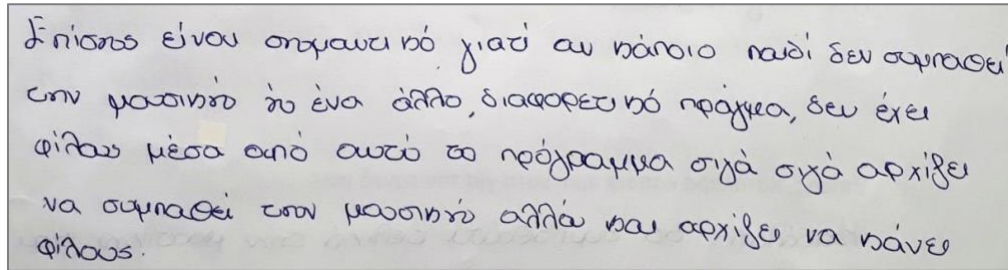 Επίσης είναι σημαντικό γιατί αν κάποιο παιδί δεν συμπαθεί
την μουσική ή ένα άλλο, διαφορετικό πράγμα, δεν έχει
φίλους μέσα από αυτό το πρόγραμμα σιγά σιγά αρχίζει
να συμπαθεί την μουσική αλλά και αρχίζει να κάνει
φίλους.